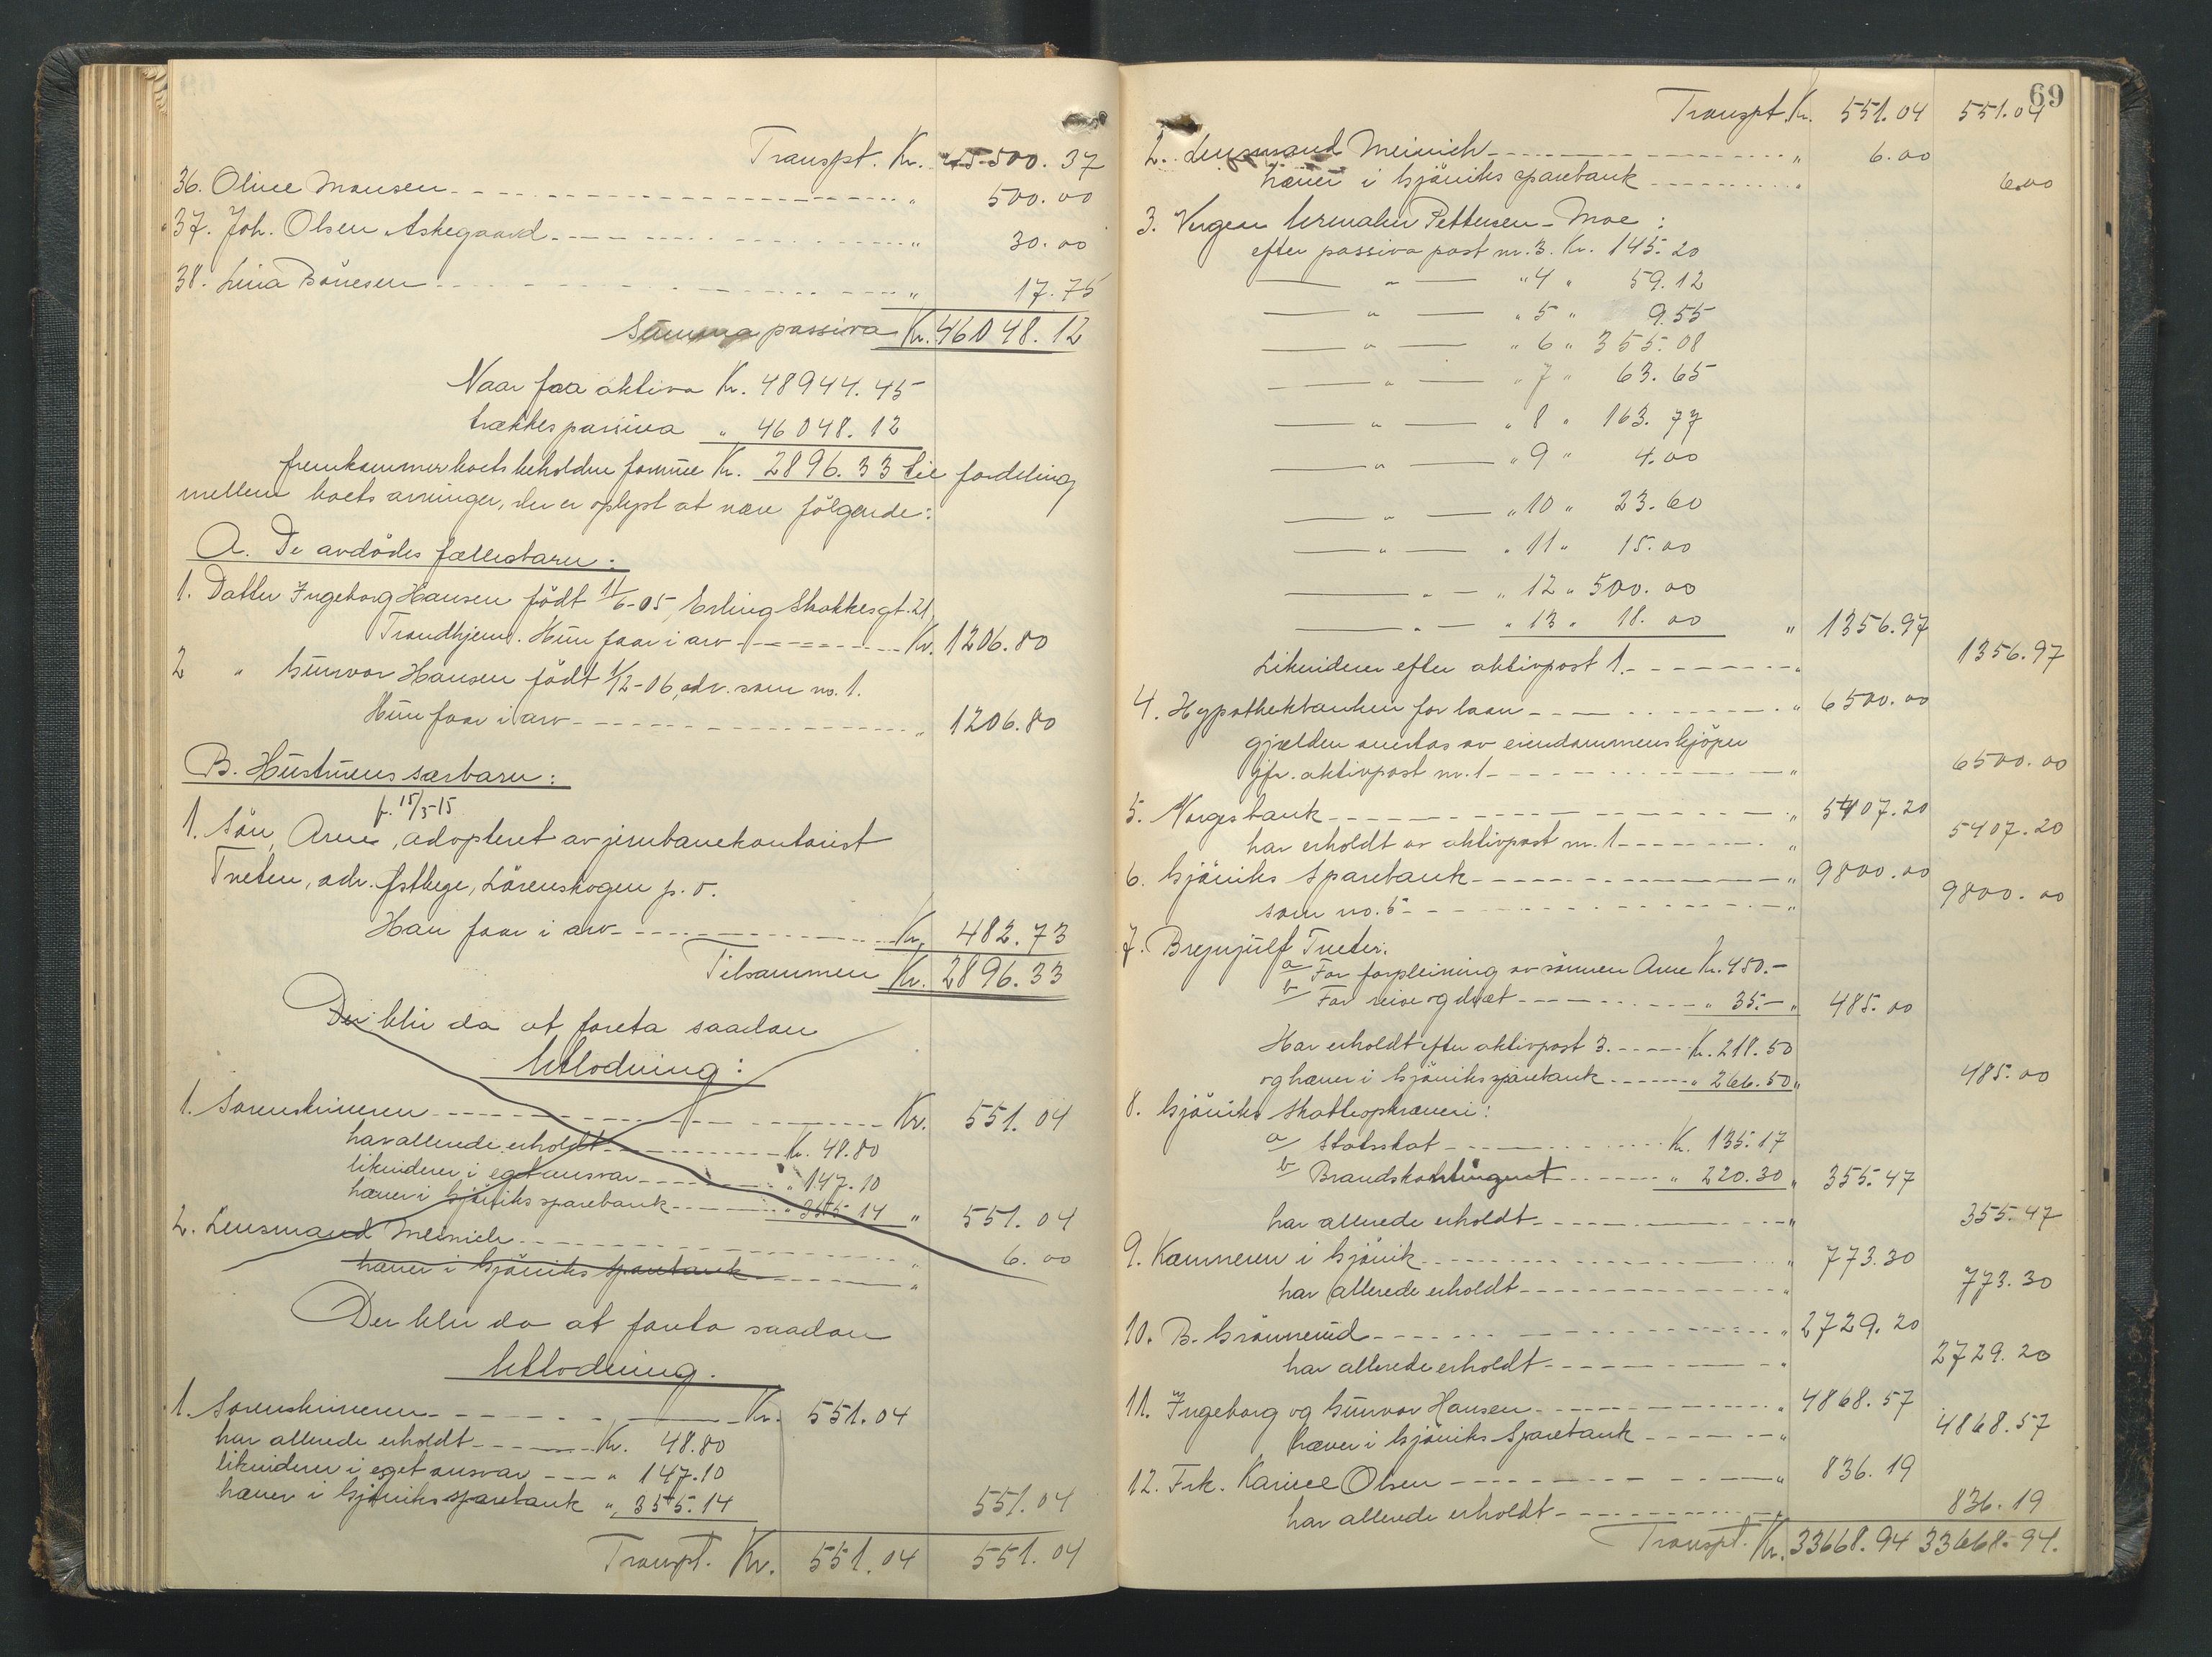 Transpt. Kr. 45500.37
36. Oline Monsen " 500.00
37. Joh. Olsen Askegaard " 30.00
38. Lina Bönesen " 17.75
Summa passiva Kr. 46048.12
Naar fra aktiva Kr. 48944.45
trækkes passiva " 46048.12
fremkommer boets beholdne formue Kr. 2896.33 til fordeling
mellem boets arvinger, der er oplyst at være følgende:
A. De avdødes fællesbarn:
1. Datter Ingeborg Hansen født 11/6-05, Erling Skakkesgt. 21,
Trondhjem. Hun faar i arv Kr. 1206.80
2 " Gunvor Hansen født 1/12-06, adr. som no. 1.
Hun faar i arv " 1206.80
B. Hustruens særbarn:
f. 15/3-15
1. Sön, Arne, adopteret av jernbanekontorist
Tveten, adr. Østhege, Lörenskogen p.o.
Han faar i arv Kr. 482.73
Tilsammen Kr. 2896.33
Der blir da at foreta saadan
Utlodning:
1. Sorenskriveren Kr. 551.04
har allerede erholdt Kr. 48.80
likviderer i eget ansvar " 147.10
hæver i Gjöviks sparebank " 355.14 " 551.04
2. Lensmand Meinich " 6.00
hæver i Gjöviks sparebank "
Der blir da at foreta saadan
Utlodning.
1. Sorenskriveren Kr. 551.04
har allerede erholdt Kr. 48.80
likviderer i eget ansvar " 147.10
hæver i Gjöviks sparebank " 355.14 551.04
Transpt. Kr. 551.04 551.04
69
Transpt. Kr. 551.04 551.04
2. Lensmand Meinich " 6.00
hæver i Gjöviks sparebank " 6.00
3. Vergen Pettersen-Moe:
efter passiva post nr. 3. Kr. 145.20
— " — " 4 " 59.12
— " — " 5 " 9.55
— " — " 6 " 355.08
— " — " 7 " 63.65
— " — " 8 " 163.77
— " — " 9 " 4.00
— " — " 10 " 23.60
— " — " 11 " 15.00
— " — " 12 " 500.00
— " — " 13 " 18.00 " 1356.97
Likviderer efter aktivpost 1. " 1356.97
4. Hypothekbanken for laan " 6500.00
gjælden overtas av eiendommens kjöper
jfr. aktivpost nr. 1 " 6500.00
5. Norges bank " 5407.20
har erholdt av aktivpost nr. 1 " 5407.20
6. Gjöviks Sparebank " 9800.00
som no. 5 " 9800.00
7. Brynjulf Tveter:
a/ For forpleining av sönnen Arne Kr. 450.-
b/ For reise og diæt " 35.- " 485.00
Har erholdt efter aktivpost 3. Kr. 218.50
og hæver i Gjöviks sparebank " 266.50 " 485.00
8. Gjöviks Skatteopkræveri:
a/ Statsskat Kr. 135.17
b/ Brandskontingent " 220.30 " 355.47
har allerede erholdt " 355.47
9. Kæmneren i Gjövik " 773.30
har allerede erholdt " 773.30
10. B. Grönnerud " 2729.20
har allerede erholdt " 2729.20
11. Ingeborg og Gunvor Hansen " 4868.57
hæver i Gjöviks Sparebank " 4868.57
12. Frk. Olsen " 836.19
har allerede erholdt " 836.19
Transpt. Kr. 33668.94 33668.94.